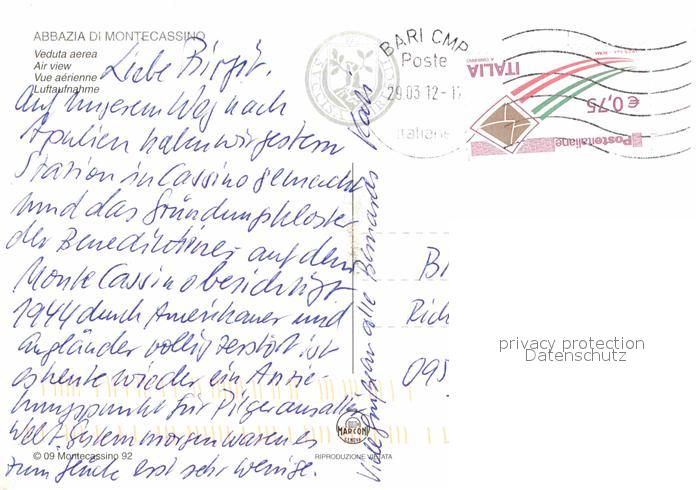 ABBAZIA DI MONTECASSINO
Veduta aerea
Air view
Vue aérienne
Luftaufnahme
Liebe Birgit,
auf unserem Weg nach
Apulien haben wir gestern
Station in Cassino gemacht
und das Gründungskloster
der Benediktiner auf dem
Monte Cassino besichtigt
1944 durch Amerikaner und
Engländer völlig zerstört ist
es heute wieder ein Anzie-
hungspunkt für Pilger aus aller
Welt. Gestern morgen waren es
zum Glück erst sehr wenige.
Viele Grüße an alle Bernards
© 09 Montecassino 92
RIPRODUZIONE VIETATA
MARCONI
GENOVA
BARI CMP
Poste
29.03.12-1
Italiane
ITALIA
€ 0,75
Posteitaliane
Bi
Rich
095
privacy protection
Datenschutz